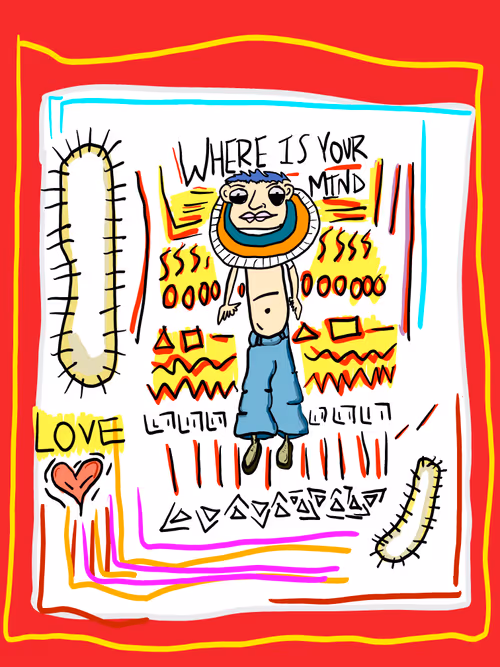 WHERE IS YOUR
MIND
LOVE